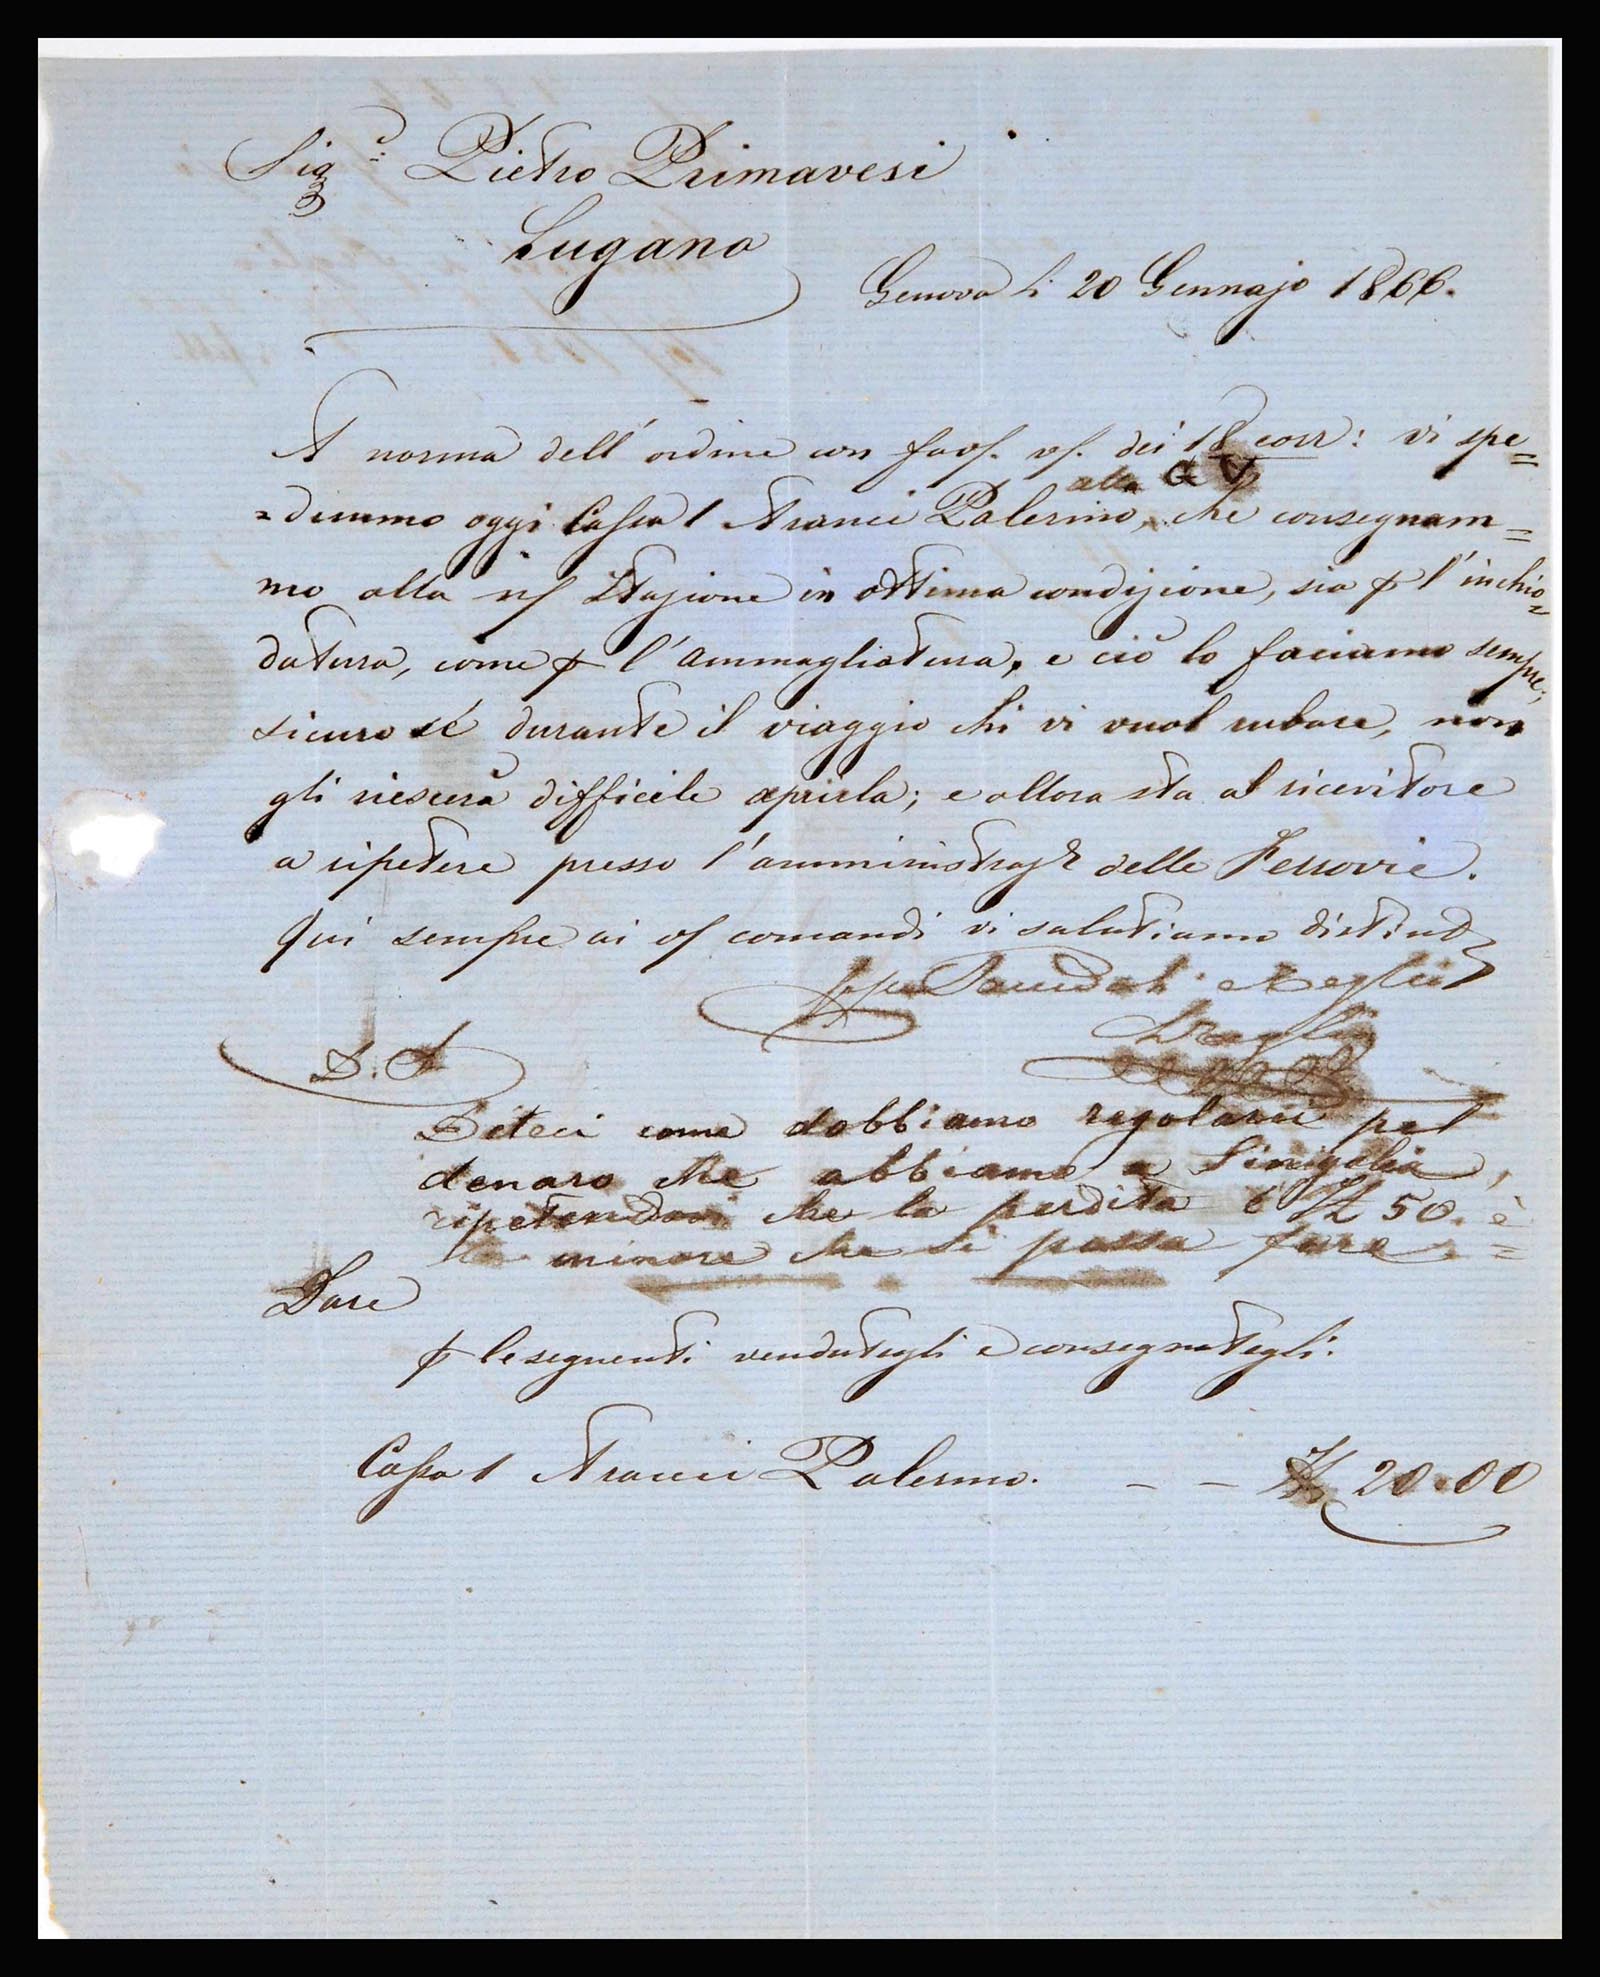 Sigr. Pietro Primavesi
Lugano
Genova li 20 Gennajo 1866.
A norma dell'ordine con fav/. v/. dei 18 corr: vi spe=
alla G V
=dimmo oggi Cassa 1 Aranci Palermo, che consegnam=
mo alla n/ Stazione in ottima condizione, sia p l'inchio=
datura, come p l'ammagliatura, e ciò lo faciamo sempre;
sicuro sé durante il viaggio chi vi vuol rubare, non
gli riescerà difficile aprirla; e allora sta al ricevitore
a ripetere presso l'amministraze delle Ferrovie.
Qui sempre ai v/ comandi vi salutiamo distint
D. S
Diteci come dobbiamo regolarci pel
denaro che abbiamo a Sinigalia,
ripetendovi che la perdita è 50. è
la minore che si possa fare =
Dare
p le seguenti vendutegli e consegnategli.
Cassa 1 Aranci Palermo. - - 20.00